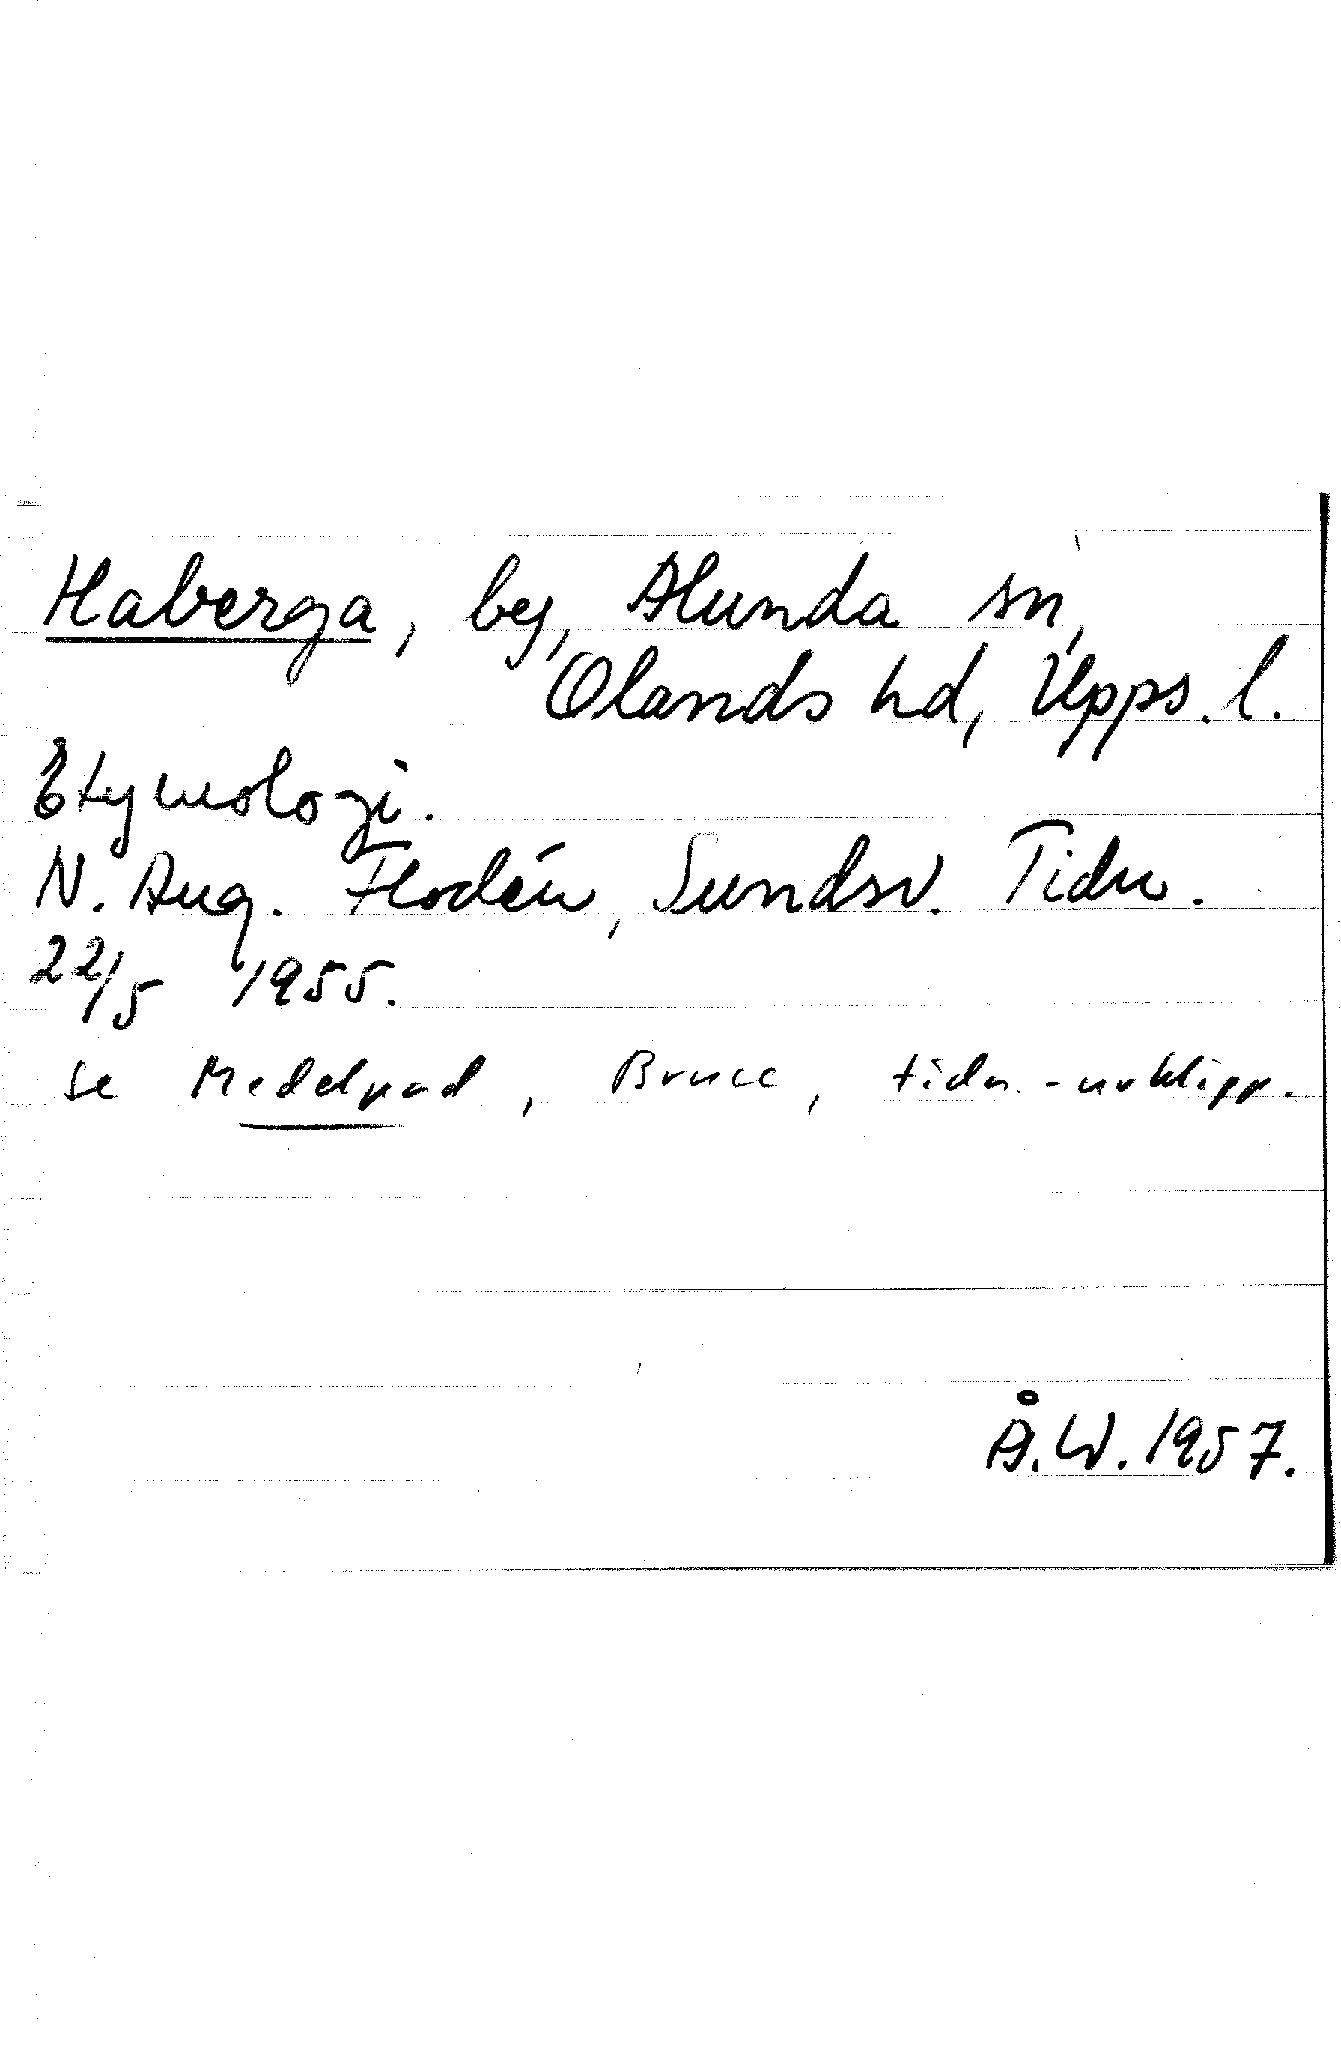 Haberga, by, Alunda sn,
Olands hd, Upps. l.
Etymologi.
N. Aug. Flodén, Sundsv. Tidn.
22/5 1955.
se Medelpad, Bruce, tidn.-urklipp.
Å.W. 1957.